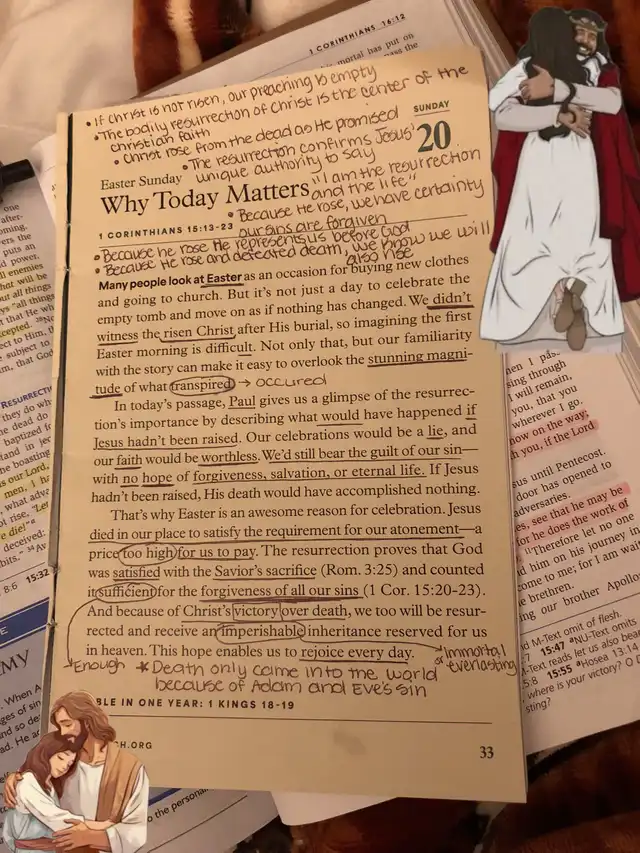 1 CORINTHIANS 16:12
• If Christ is not risen, our preaching is empty
• The bodily resurrection of Christ is the center of the
christian faith
• Christ rose from the dead as He promised
• The resurrection confirms Jesus'
unique authority to say
"I am the resurrection
and the life"
SUNDAY
20
Easter Sunday
Why Today Matters
• Because He rose, we have certainty
our sins are forgiven
1 CORINTHIANS 15:13-23
• Because he rose He represents us before God
• Because He rose and defeated death, we know we will
also rise
Many people look at Easter as an occasion for buying new clothes
and going to church. But it's not just a day to celebrate the
empty tomb and move on as if nothing has changed. We didn't
witness the risen Christ after His burial, so imagining the first
Easter morning is difficult. Not only that, but our familiarity
with the story can make it easy to overlook the stunning magni-
tude of what transpired → occured
In today's passage, Paul gives us a glimpse of the resurrec-
tion's importance by describing what would have happened if
Jesus hadn't been raised. Our celebrations would be a lie, and
our faith would be worthless. We'd still bear the guilt of our sin—
with no hope of forgiveness, salvation, or eternal life. If Jesus
hadn't been raised, His death would have accomplished nothing.
That's why Easter is an awesome reason for celebration. Jesus
died in our place to satisfy the requirement for our atonement—a
price too high for us to pay. The resurrection proves that God
was satisfied with the Savior's sacrifice (Rom. 3:25) and counted
it sufficient for the forgiveness of all our sins (1 Cor. 15:20-23).
And because of Christ's victory over death, we too will be resur-
rected and receive an imperishable inheritance reserved for us
in heaven. This hope enables us to rejoice every day.
→ Immortal
or everlasting
Enough
* Death only came into the world
because of Adam and Eve's sin
BLE IN ONE YEAR: 1 KINGS 18-19
CH.ORG
33
sing through
I will remain,
you, that you
wherever I go.
now on the way;
h you, if the Lord
us until Pentecost.
door has opened to
adversaries.
s, see that he may be
for he does the work of
Therefore let no one
d him on his journey in
come to me; for I am wa
e brethren.
ng our brother Apollo
d M-Text omit of flesh.
15:47 NU-Text omits
M-Text reads let us also bear
15:55 Hosea 13:14
where is your victory? O
sting?
8:6 15:32